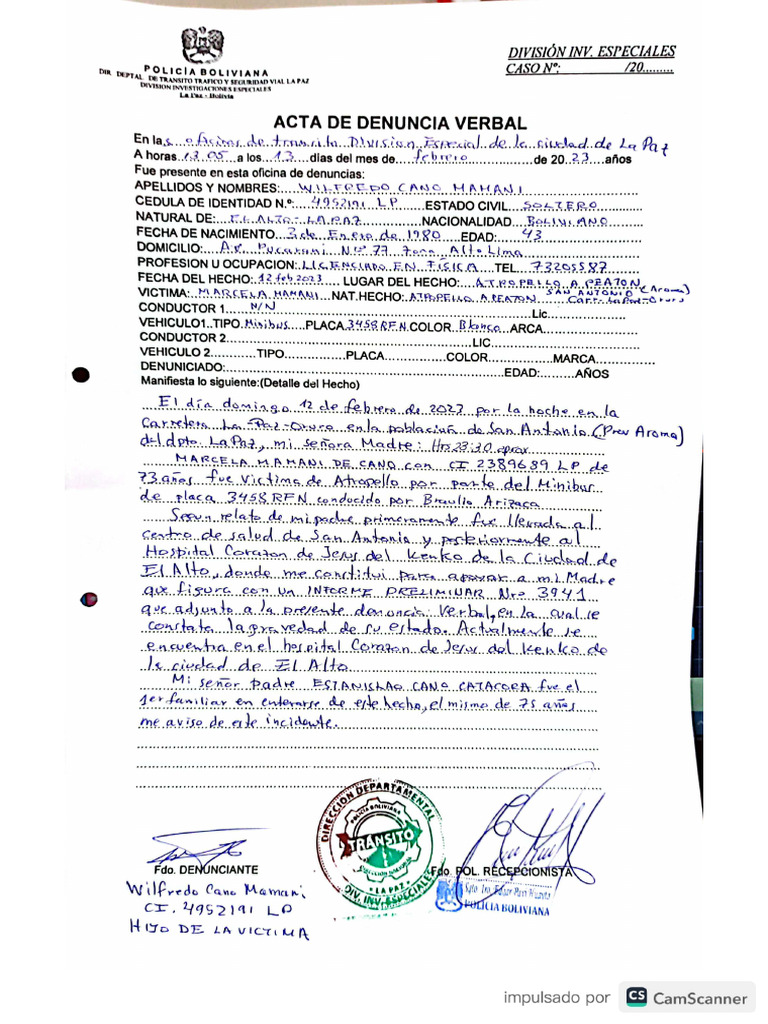 POLICÍA BOLIVIANA
DIR. DEPTAL. DE TRANSITO TRAFICO Y SEGURIDAD VIAL LA PAZ
DIVISION INVESTIGACIONES ESPECIALES
La Paz - Bolivia
DIVISIÓN INV. ESPECIALES
CASO Nº: /20.........
ACTA DE DENUNCIA VERBAL
En las oficinas de transito Division Especial de la ciudad de La Paz
A horas 13:05 a los 13 días del mes de febrero de 2023 años
Fue presente en esta oficina de denuncias:
APELLIDOS Y NOMBRES: WILFREDO CANO MAMANI
CEDULA DE IDENTIDAD N.º: 4952191 LP ESTADO CIVIL SOLTERO
NATURAL DE: EL ALTO - LA PAZ NACIONALIDAD BOLIVIANO
FECHA DE NACIMIENTO 3 de Enero de 1980 EDAD: 43
DOMICILIO: Av. Pucarani Nro 77 zona Alto Lima
PROFESION U OCUPACION: LICENCIADO EN FISICA TEL 73205587
FECHA DEL HECHO: 12 feb 2023 LUGAR DEL HECHO: ATROPELLO A PEATON
SAN ANTONIO (Aroma)
VICTIMA: MARCELA MAMANI NAT.HECHO: ATROPELLO A PEATON Carr. La Paz-Oruro
CONDUCTOR 1 N/N Lic
VEHICULO1. TIPO Minibus PLACA 3458RFN COLOR Blanco ARCA
CONDUCTOR 2 LIC
VEHICULO 2 TIPO PLACA COLOR MARCA
DENUNCIADO: EDAD: AÑOS
Manifiesta lo siguiente:(Detalle del Hecho)
El día domingo 12 de febrero de 2023 por la noche en la
Carretera La Paz-Oruro en la población de San Antonio (Prov Aroma)
del dpto La Paz, mi señora Madre: Hrs 23:20 aprox
MARCELA MAMANI DE CANO con CI 2389689 LP de
73 años fue victima de Atropello por parte del Minibus
de placa 3458 RFN conducido por Braulio Arizaca
Segun relato de mi padre primeramente fue llevada al
centro de salud de San Antonio y posteriormente al
Hospital Corazon de Jesus del Kenko de la Ciudad de
El Alto, donde me constitui para apoyar a mi Madre
que figura con un INFORME PRELIMINAR Nro 3941
que adjunto a la presente denuncia verbal, en la cual se
constata la gravedad de su estado. Actualmente se
encuentra en el hospital Corazon de Jesus del Kenko de
la ciudad de El Alto
Mi señor Padre ESTANISLAO CANO CATACORA fue el
1er familiar en enterarse de este hecho, el mismo de 75 años
me aviso de este incidente.
DIRECCIÓN DEPARTAMENTAL
POLICIA BOLIVIANA
TRANSITO
LA PAZ
DIV. INV. ESPECIALES
Fdo. DENUNCIANTE
Wilfredo Cano Mamani
CI. 4952191 LP
HIJO DE LA VICTIMA
Fdo. POL. RECEPCIONISTA
POLICÍA BOLIVIANA
impulsado por CS CamScanner